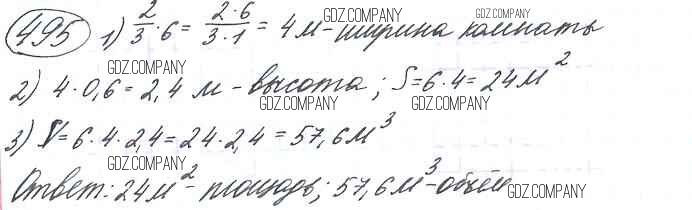 495 1) 2/3 · 6 = 2·6/3·1 = 4 м - ширина комнаты
GDZ.COMPANY GDZ.COMPANY GDZ.COMPANY
2) 4 · 0,6 = 2,4 м - высота; S = 6 · 4 = 24 м²
GDZ.COMPANY GDZ.COMPANY GDZ.COMPANY
3) V = 6 · 4 · 2,4 = 24 · 2,4 = 57,6 м³
GDZ.COMPANY
Ответ: 24 м² - площадь; 57,6 м³ - объём
GDZ.COMPANY GDZ.COMPANY